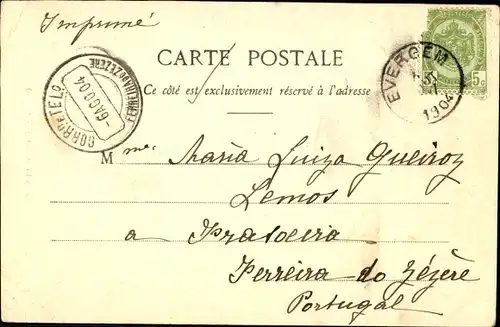 Imprimé
CARTE POSTALE
Ce côté est exclusivement réservé à l'adresse
EVERGEM
1904
5c
FERREIRA DO ZEZERE
-6AGO.04
CORRº E TELº
Mme. Maria Luiza Queiroz
Lemos
a Frasoeira
Ferreira do Zézère
Portugal